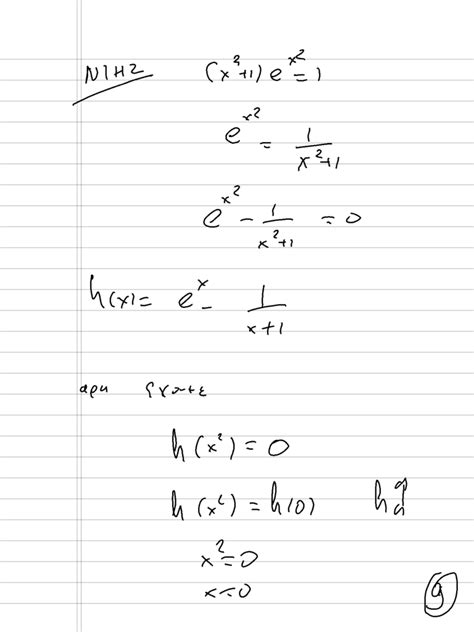 N1H2 (x²+1) e^x² = 1
e^x² = 1/(x²+1)
e^x² - 1/(x²+1) = 0
h(x) = e^x - 1/(x+1)
αρα έχουμε
h(x²) = 0
h(x²) = h(0) h↑
x² = 0
x = 0
9